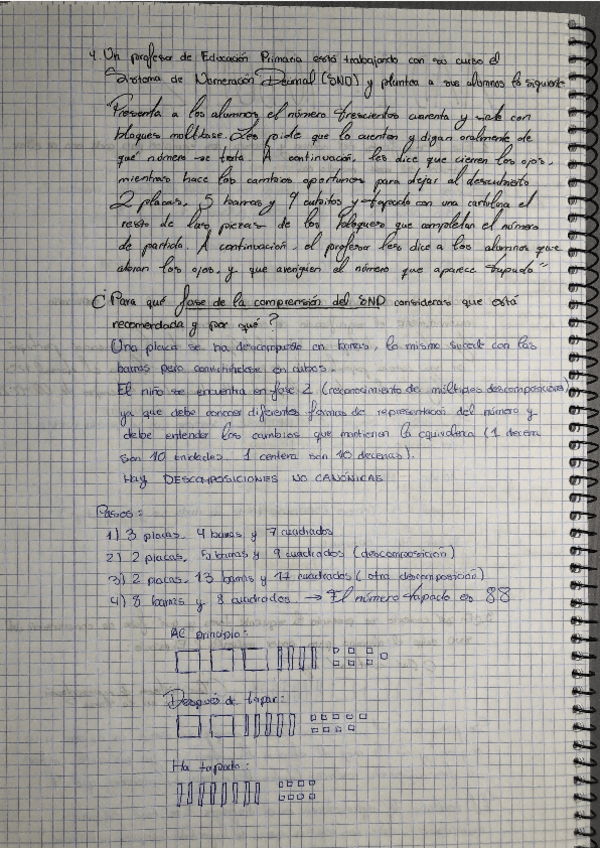 4. Un profesor de Educación Primaria está trabajando con su curso el
Sistema de Numeración Decimal (SND) y plantea a sus alumnos lo siguiente:
"Presenta a los alumnos el número trescientos cuarenta y siete con
bloques multibase. Les pide que lo cuenten y digan oralmente de
qué número se trata. A continuación, les dice que cierren los ojos,
mientras hace los cambios oportunos para dejar al descubierto
2 placas, 5 barras y 9 cubitos y tapado con una cartulina el
resto de las piezas de los bloques que completan el número
de partida. A continuación, el profesor les dice a los alumnos que
abran los ojos, y que averigüen el número que aparece tapado"
¿Para qué fase de la comprensión del SND consideras que está
recomendada y por qué?
Una placa se ha descompuesto en barras, lo mismo sucede con las
barras pero en cubos.
El niño se encuentra en fase 2 (reconocimiento de múltiples descomposiciones)
ya que debe conocer diferentes formas de representación del número y
debe entender los cambios que mantienen la equivalencia (1 decena
son 10 unidades, 1 centena son 10 decenas).
Hay DESCOMPOSICIONES NO CANÓNICAS
Pasos:
1) 3 placas, 4 barras y 7 cuadrados
2) 2 placas, 5 barras y 9 cuadrados (descomposición)
3) 2 placas, 13 barras y 17 cuadrados (otra descomposición)
4) 8 barras y 8 cuadrados → El número tapado es 88
Al principio:
Después de tapar:
Ha tapado: